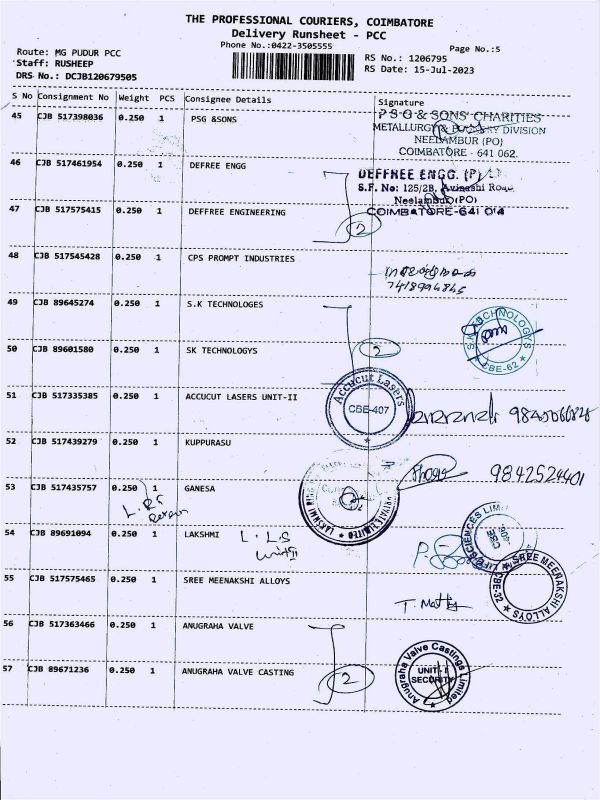 THE PROFESSIONAL COURIERS, COIMBATORE
Delivery Runsheet - PCC
Phone No.:0422-3505555
Page No.:5
Route: MG PUDUR PCC
Staff: RUSHEEP
DRS No.: DCJB120679505
RS No.: 1206795
RS Date: 15-Jul-2023
S No Consignment No Weight PCS Consignee Details Signature
45 CJB 517398036 0.250 1 PSG &SONS
P S G & SONS' CHARITIES
METALLURGY & FOUNDRY DIVISION
NEELAMBUR (PO)
COIMBATORE - 641 062.
46 CJB 517461954 0.250 1 DEFREE ENGG
DEFFREE ENGG. (P) LTD
S.F. No: 125/2B, Avinashi Road,
Neelambur(PO)
COIMBATORE-641 014
47 CJB 517575415 0.250 1 DEFFREE ENGINEERING
2
48 CJB 517545428 0.250 1 CPS PROMPT INDUSTRIES
7418994845
49 CJB 89645274 0.250 1 S.K TECHNOLOGES
S.K. TECHNOLOGYS
CBE-62
50 CJB 89601580 0.250 1 SK TECHNOLOGYS
2
51 CJB 517335385 0.250 1 ACCUCUT LASERS UNIT-II
Accucut Lasers
CBE-407
52 CJB 517439279 0.250 1 KUPPURASU
9842524401
53 CJB 517435757 0.250 1 GANESA
PRIVATE LIMITED
54 CJB 89691094 0.250 1 LAKSHMI
L. L S
SCIENCES LIMI
55 CJB 517575465 0.250 1 SREE MEENAKSHI ALLOYS
SREE MEENAKSHI ALLOYS
CBE-32
56 CJB 517363466 0.250 1 ANUGRAHA VALVE
57 CJB 89671236 0.250 1 ANUGRAHA VALVE CASTING
2
Anugraha Valve Castings Limited
UNIT-I
SECURITY